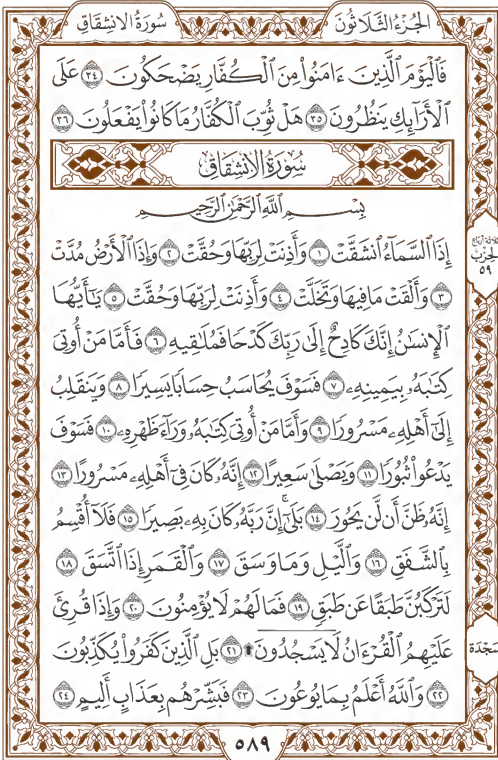 سُورَةُ الانشِقَاقِ
الجُزْءُ الثَّلَاثُونَ
فَٱلْيَوْمَ ٱلَّذِينَ ءَامَنُوا۟ مِنَ ٱلْكُفَّارِ يَضْحَكُونَ ٣٤ عَلَى
ٱلْأَرَآئِكِ يَنظُرُونَ ٣٥ هَلْ ثُوِّبَ ٱلْكُفَّارُ مَا كَانُوا۟ يَفْعَلُونَ ٣٦
سُورَةُ الانشِقَاقِ
بِسْمِ ٱللَّهِ ٱلرَّحْمَٰنِ ٱلرَّحِيمِ
إِذَا ٱلسَّمَآءُ ٱنشَقَّتْ ١ وَأَذِنَتْ لِرَبِّهَا وَحُقَّتْ ٢ وَإِذَا ٱلْأَرْضُ مُدَّتْ
٣ وَأَلْقَتْ مَا فِيهَا وَتَخَلَّتْ ٤ وَأَذِنَتْ لِرَبِّهَا وَحُقَّتْ ٥ يَٰٓأَيُّهَا
ٱلْإِنسَٰنُ إِنَّكَ كَادِحٌ إِلَىٰ رَبِّكَ كَدْحًا فَمُلَٰقِيهِ ٦ فَأَمَّا مَنْ أُوتِىَ
كِتَٰبَهُۥ بِيَمِينِهِۦ ٧ فَسَوْفَ يُحَاسَبُ حِسَابًا يَسِيرًا ٨ وَيَنقَلِبُ
إِلَىٰٓ أَهْلِهِۦ مَسْرُورًا ٩ وَأَمَّا مَنْ أُوتِىَ كِتَٰبَهُۥ وَرَآءَ ظَهْرِهِۦ ١٠ فَسَوْفَ
يَدْعُوا۟ ثُبُورًا ١١ وَيَصْلَىٰ سَعِيرًا ١٢ إِنَّهُۥ كَانَ فِىٓ أَهْلِهِۦ مَسْرُورًا ١٣
إِنَّهُۥ ظَنَّ أَن لَّن يَحُورَ ١٤ بَلَىٰٓ إِنَّ رَبَّهُۥ كَانَ بِهِۦ بَصِيرًا ١٥ فَلَآ أُقْسِمُ
بِٱلشَّفَقِ ١٦ وَٱلَّيْلِ وَمَا وَسَقَ ١٧ وَٱلْقَمَرِ إِذَا ٱتَّسَقَ ١٨
لَتَرْكَبُنَّ طَبَقًا عَن طَبَقٍ ١٩ فَمَا لَهُمْ لَا يُؤْمِنُونَ ٢٠ وَإِذَا قُرِئَ
عَلَيْهِمُ ٱلْقُرْءَانُ لَا يَسْجُدُونَ ۩ ٢١ بَلِ ٱلَّذِينَ كَفَرُوا۟ يُكَذِّبُونَ
٢٢ وَٱللَّهُ أَعْلَمُ بِمَا يُوعُونَ ٢٣ فَبَشِّرْهُم بِعَذَابٍ أَلِيمٍ ٢٤
ثلاثة أرباع
الحزب
٥٩
سَجْدَة
٥٨٩